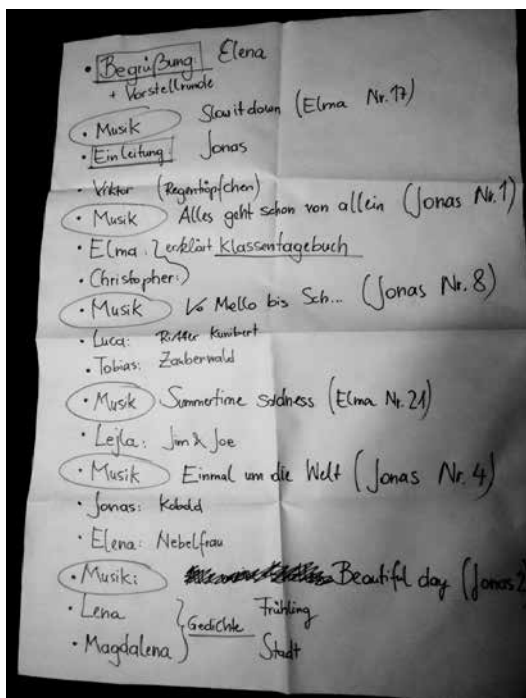 • Begrüßung: Elena
+ Vorstellrunde
• Musik Slow it down (Elma Nr. 17)
• Einleitung: Jonas
• Viktor (Regentöpfchen)
• Musik Alles geht schon von allein (Jonas Nr. 1)
• Elma: erklärt Klassentagebuch
• Christopher:
• Musik Vo Mello bis Sch... (Jonas Nr. 8)
• Luca: Ritter Kunibert
• Tobias: Zauberwald
• Musik Summertime sadness (Elma Nr. 21)
• Lejla: Jim & Joe
• Musik Einmal um die Welt (Jonas Nr. 4)
• Jonas: Kobold
• Elena: Nebelfrau
• Musik: Beautiful day (Jonas 2
• Lena Frühling
Gedichte
• Magdalena Stadt